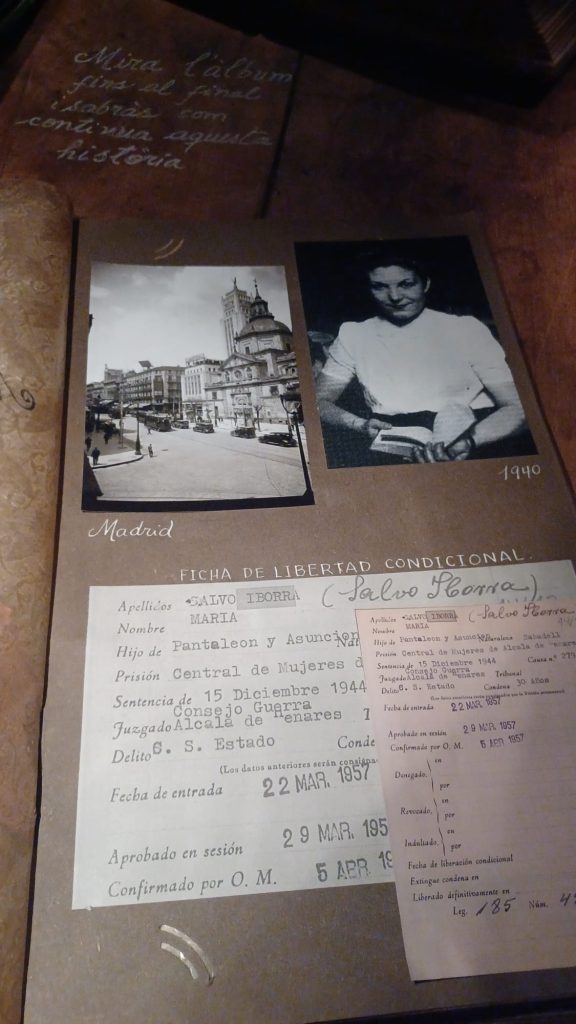 Mira l'àlbum
fins al final
i sabràs com
continua aquesta
història
Madrid
1940
FICHA DE LIBERTAD CONDICIONAL.
Apellidos SALVO IBORRA (Salvo Iborra)
Nombre MARIA
Hijo de Pantaleon y Asuncion
Prisión Central de Mujeres d
Sentencia de 15 Diciembre 1944
Consejo Guerra
Juzgado Alcala de Henares T
Delito S. S. Estado Conde
(Los datos anteriores serán consigna
Fecha de entrada 22 MAR. 1957
Aprobado en sesión 29 MAR. 195
Confirmado por O. M. 5 ABR 19
Apellidos SALVO IBORRA (Salvo Iborra
Nombre MARIA
Hijo de Pantaleon y Asuncion Sabadell
Prisión Central de Mujeres de Alcala de
Sentencia de 15 Diciembre 1944 Causa n.º
Consejo Guerra
Juzgado Alcala de Henares Tribunal
Delito S. S. Estado Condena 30 Años
(Los datos anteriores serán consignados por la Prisión
Fecha de entrada 22 MAR. 1957
Aprobado en sesión 29 MAR. 1957
Confirmado por O. M. 5 ABR 1957
Denegado, en
por
Revocado, en
por
Indultado, en
por
Fecha de liberación condicional
Extingue condena en
Liberado definitivamente en
Leg. 185 Núm.